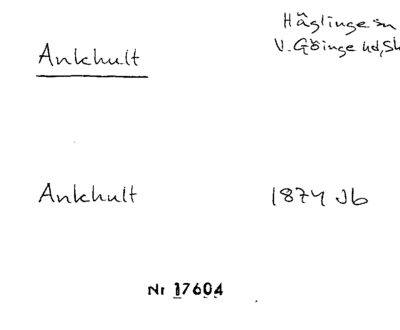 Häglinge sn
V. Göinge hd, Sk
Ankhult
Ankhult 1874 Jb
Nr 17604